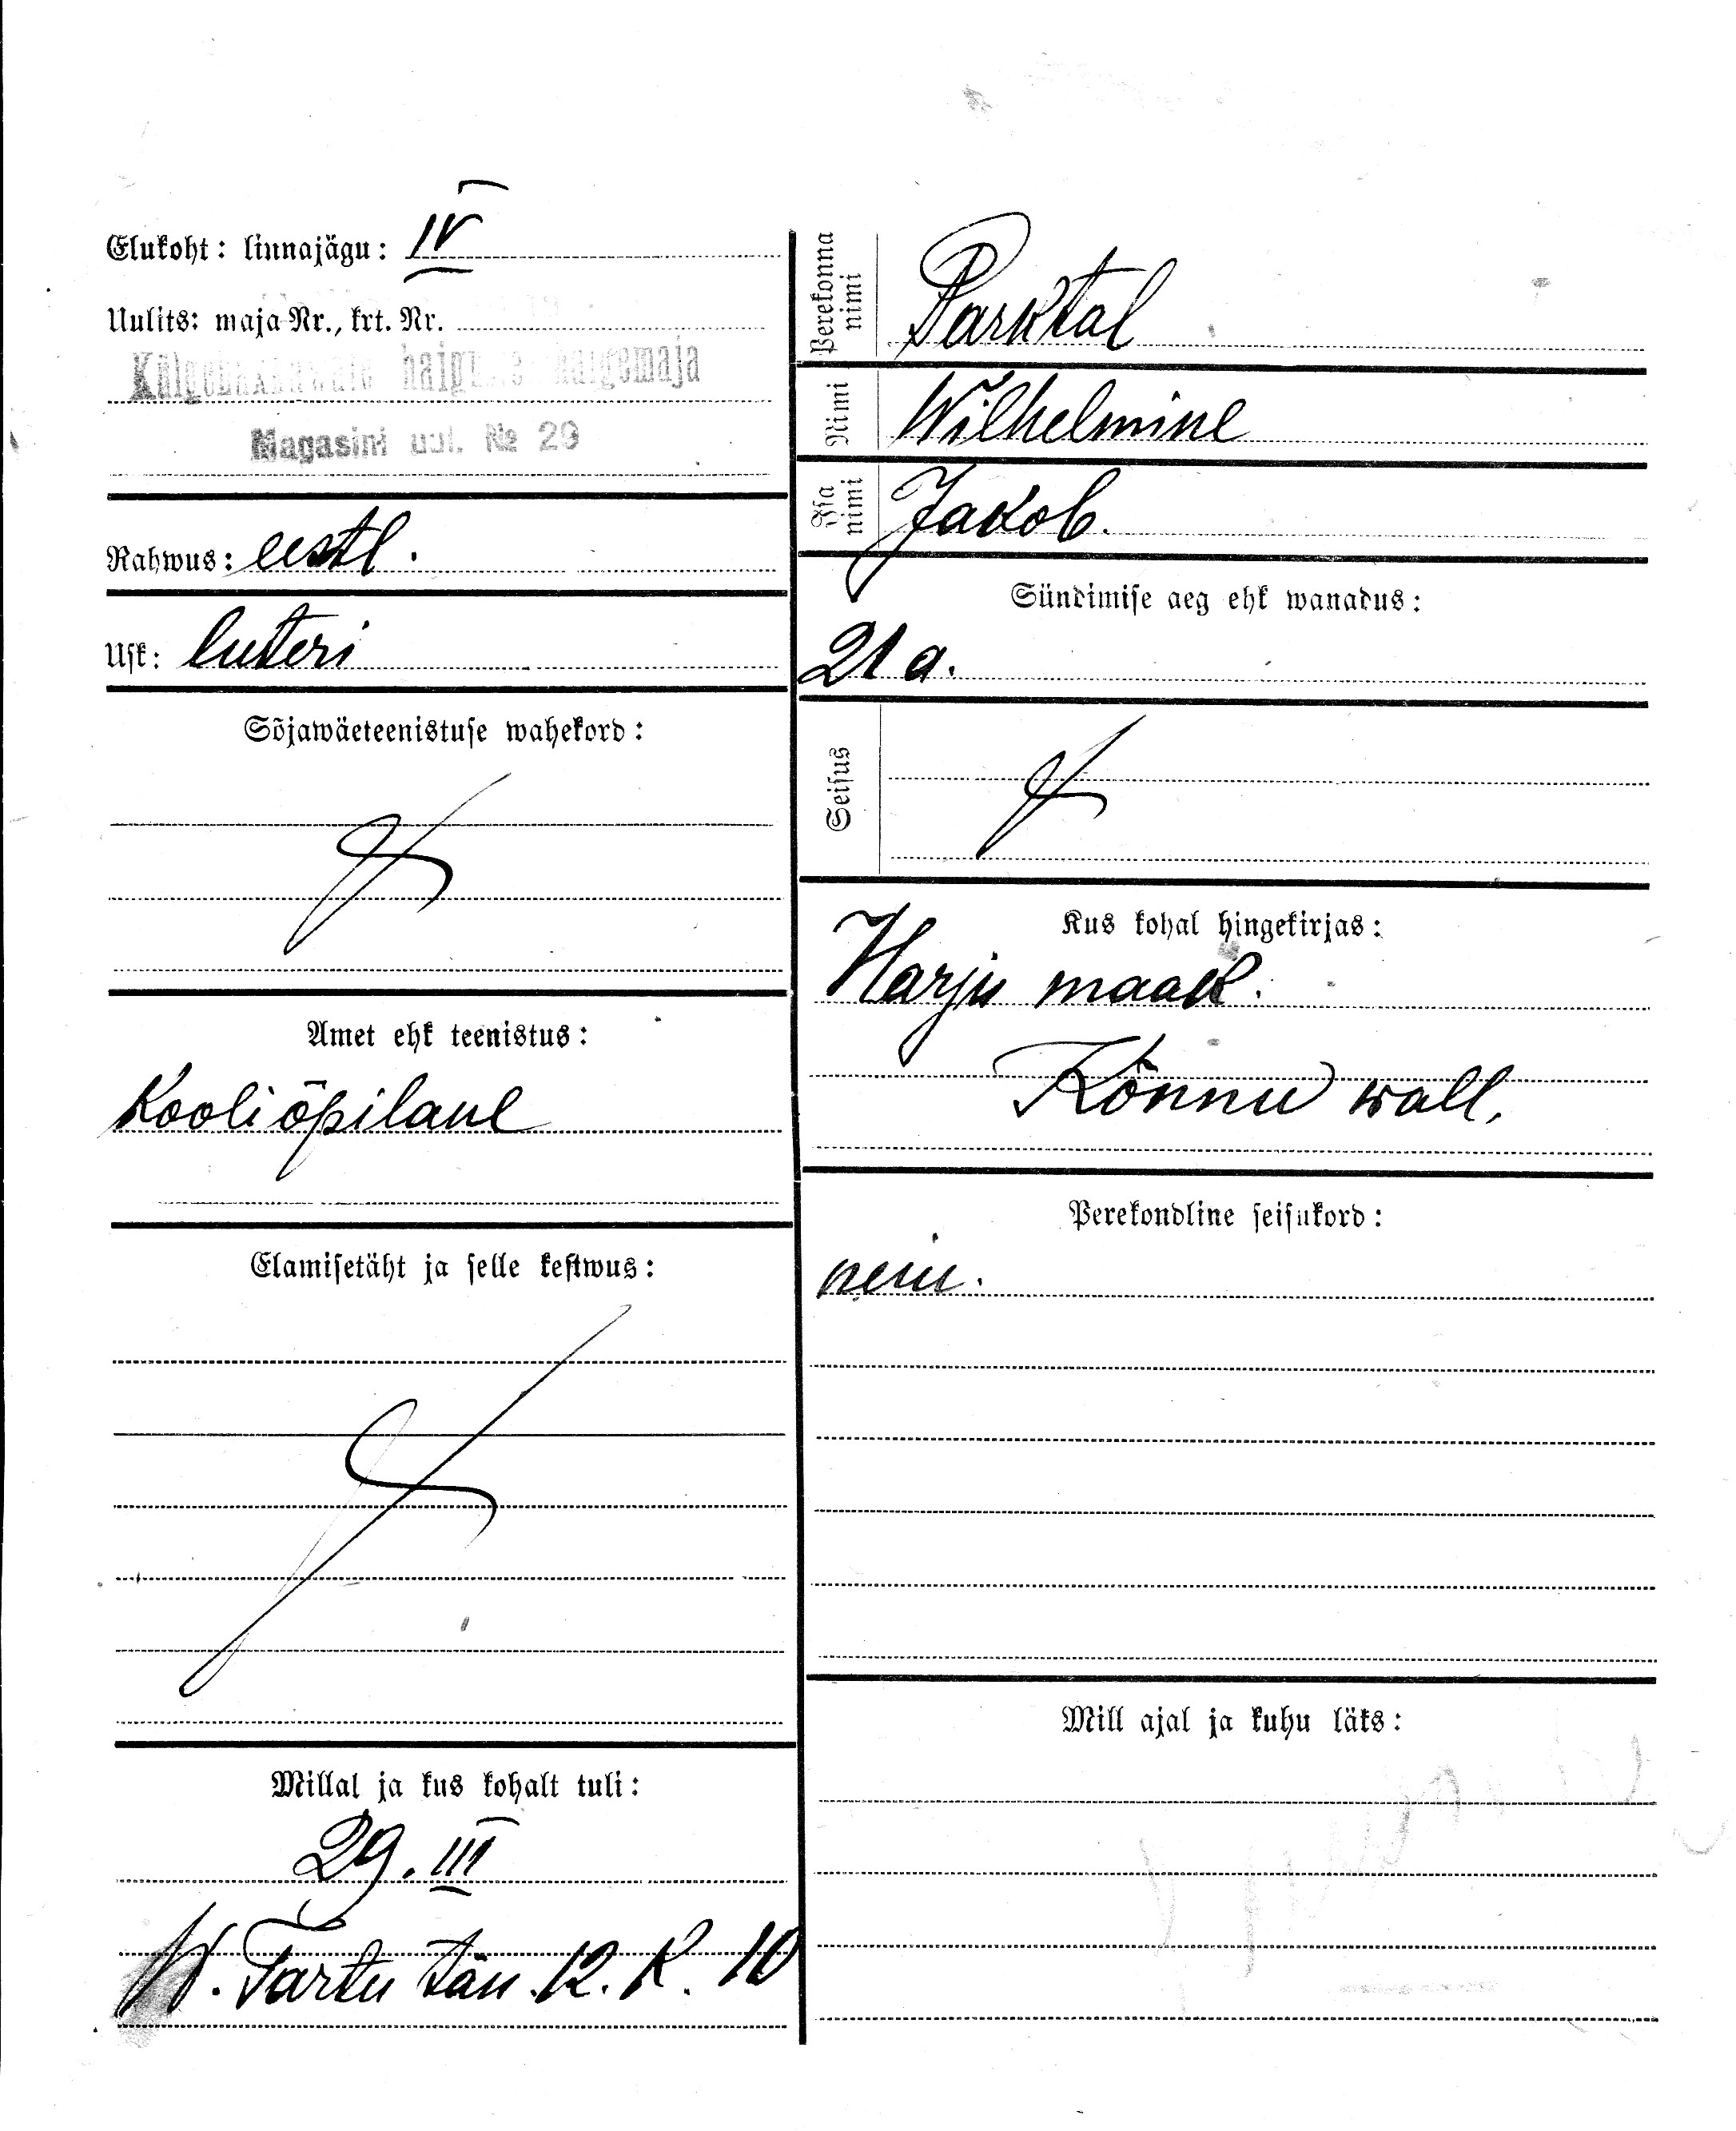 Elukoht: linnajägu: IV
Uulits: maja Nr., krt. Nr.
Külgehakkawate haiguste haigemaja
Magasini uul. № 29
Rahwus: eestl.
Usk: luteri
Sõjawäeteenistuse wahekord:
Amet ehk teenistus:
Kooliõpilane
Elamisetäht ja selle kestwus:
Millal ja kus kohalt tuli:
29. III
W. Tartu tän. 12. K. 10
Perekonna nimi
Parktal
Nimi
Wilhelmine
Isa nimi
Jakob.
Sündimise aeg ehk wanadus:
21 a.
Seisus
Kus kohal hingekirjas:
Harju maak.
Kõnnu wall.
Perekondline seisukord:
neiu.
Mill ajal ja kuhu läks: